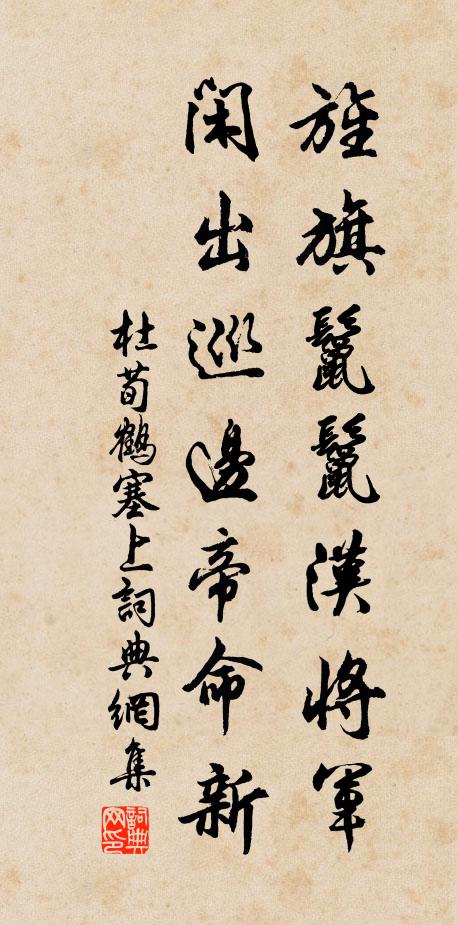 旌旗鬣鬣漢將軍
閑出巡邊帝命新
杜荀鶴塞上詞典網集
詞典网印